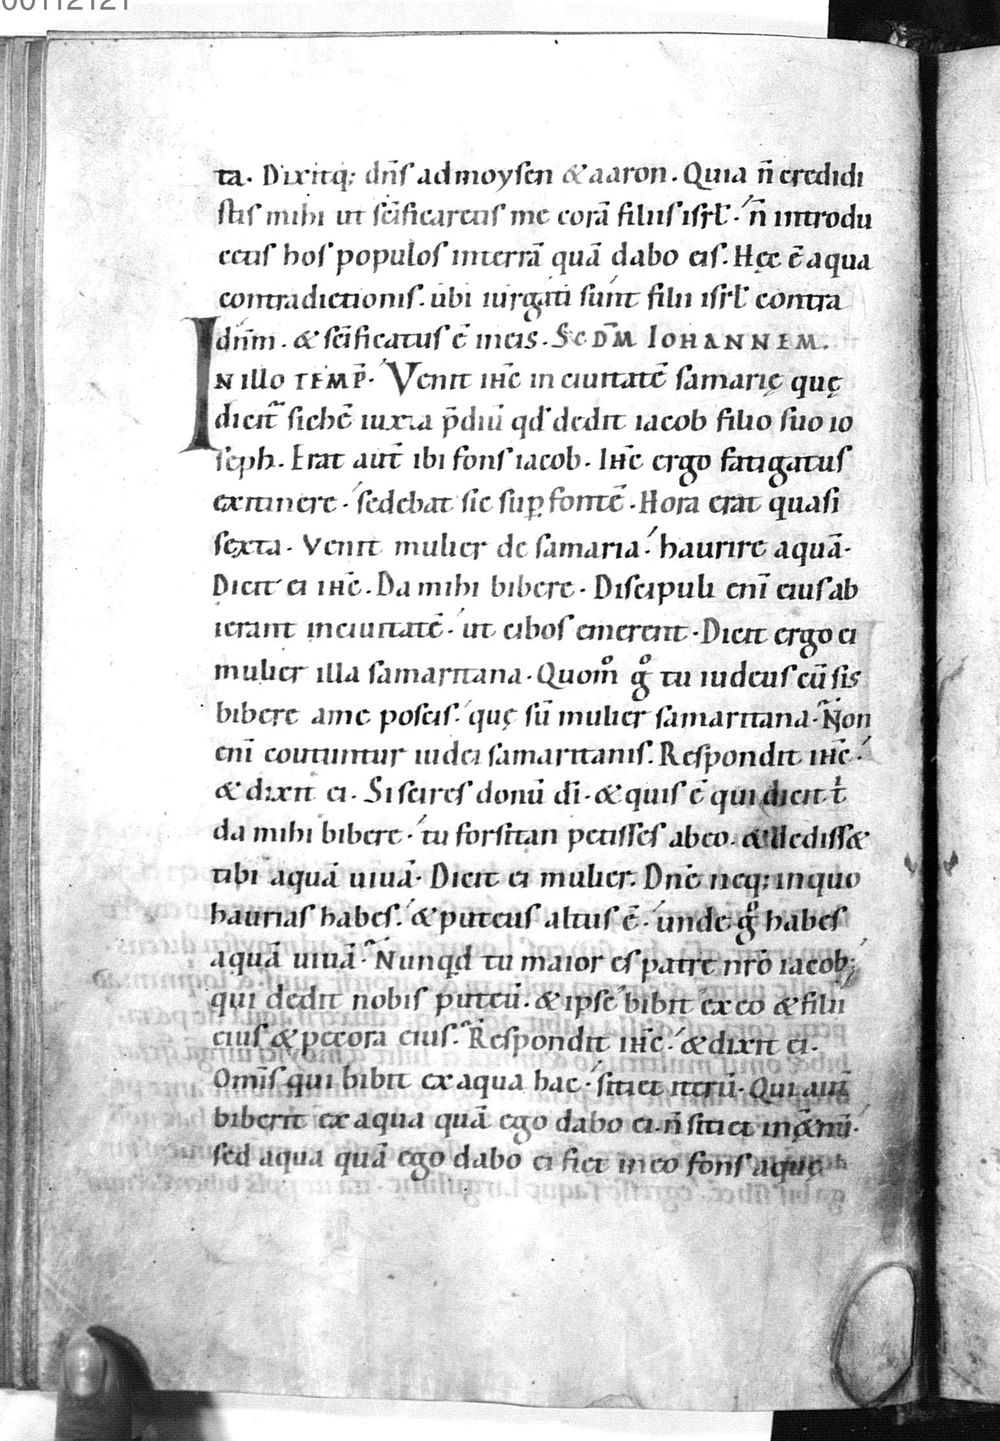 00112121
ta. Dixitq; dn̄s ad moysen & aaron. Quia n̄ credidi
stis mihi ut sc̄ificaretis me corā filiis isrl̄. n̄ introdu
cetis hos populos in terrā quā dabo eis. Hęc ē aqua
contradictionis. ubi iurgati sunt filii isrl̄ contra
dn̄m. & sc̄ificatus ē in eis. Scd̄m Iohannem.
In illo temp̄. Venit ih̄c in ciuitatē samarię quę
dicit̃ sichē iuxta p̄diū qd̄ dedit iacob filio suo io
seph. Erat aut̄ ibi fons iacob. Ih̄c ergo fatigatus
ex itinere. sedebat sic sup̱ fontē. Hora erat quasi
sexta. Venit mulier de samaria. haurire aquā.
Dicit ei ih̄c. Da mihi bibere. Discipuli eni̅ eius ab
ierant in ciuitatē. ut cibos emerent. Dicit ergo ei
mulier illa samaritana. Quom̊ g̊ tu iudeus cū sis
bibere a me poscis. quę sū mulier samaritana. Non
eni̅ coutuntur iudei samaritanis. Respondit ih̄c.
& dixit ei. Si scires donū di̅. & quis ē qui dicit t̍
da mihi bibere. tu forsitan petisses ab eo. & dediss&
tibi aquā uiuā. Dicit ei mulier. Dn̄e neq; in quo
haurias habes. & puteus altus ē. unde g̊ habes
aquā uiuā. Nunqd̄ tu maior es patre nr̄o iacob;
qui dedit nobis puteū. & ipse bibit ex eo & filii
eius & pecora eius. Respondit ih̄c. & dixit ei.
Omīs qui bibit ex aqua hac. sitiet iterū. Qui aut̄
biberit ex aqua quā ego dabo ei. n̄ sitiet in &̄nū.
sed aqua quā ego dabo ei fiet in eo fons aquę